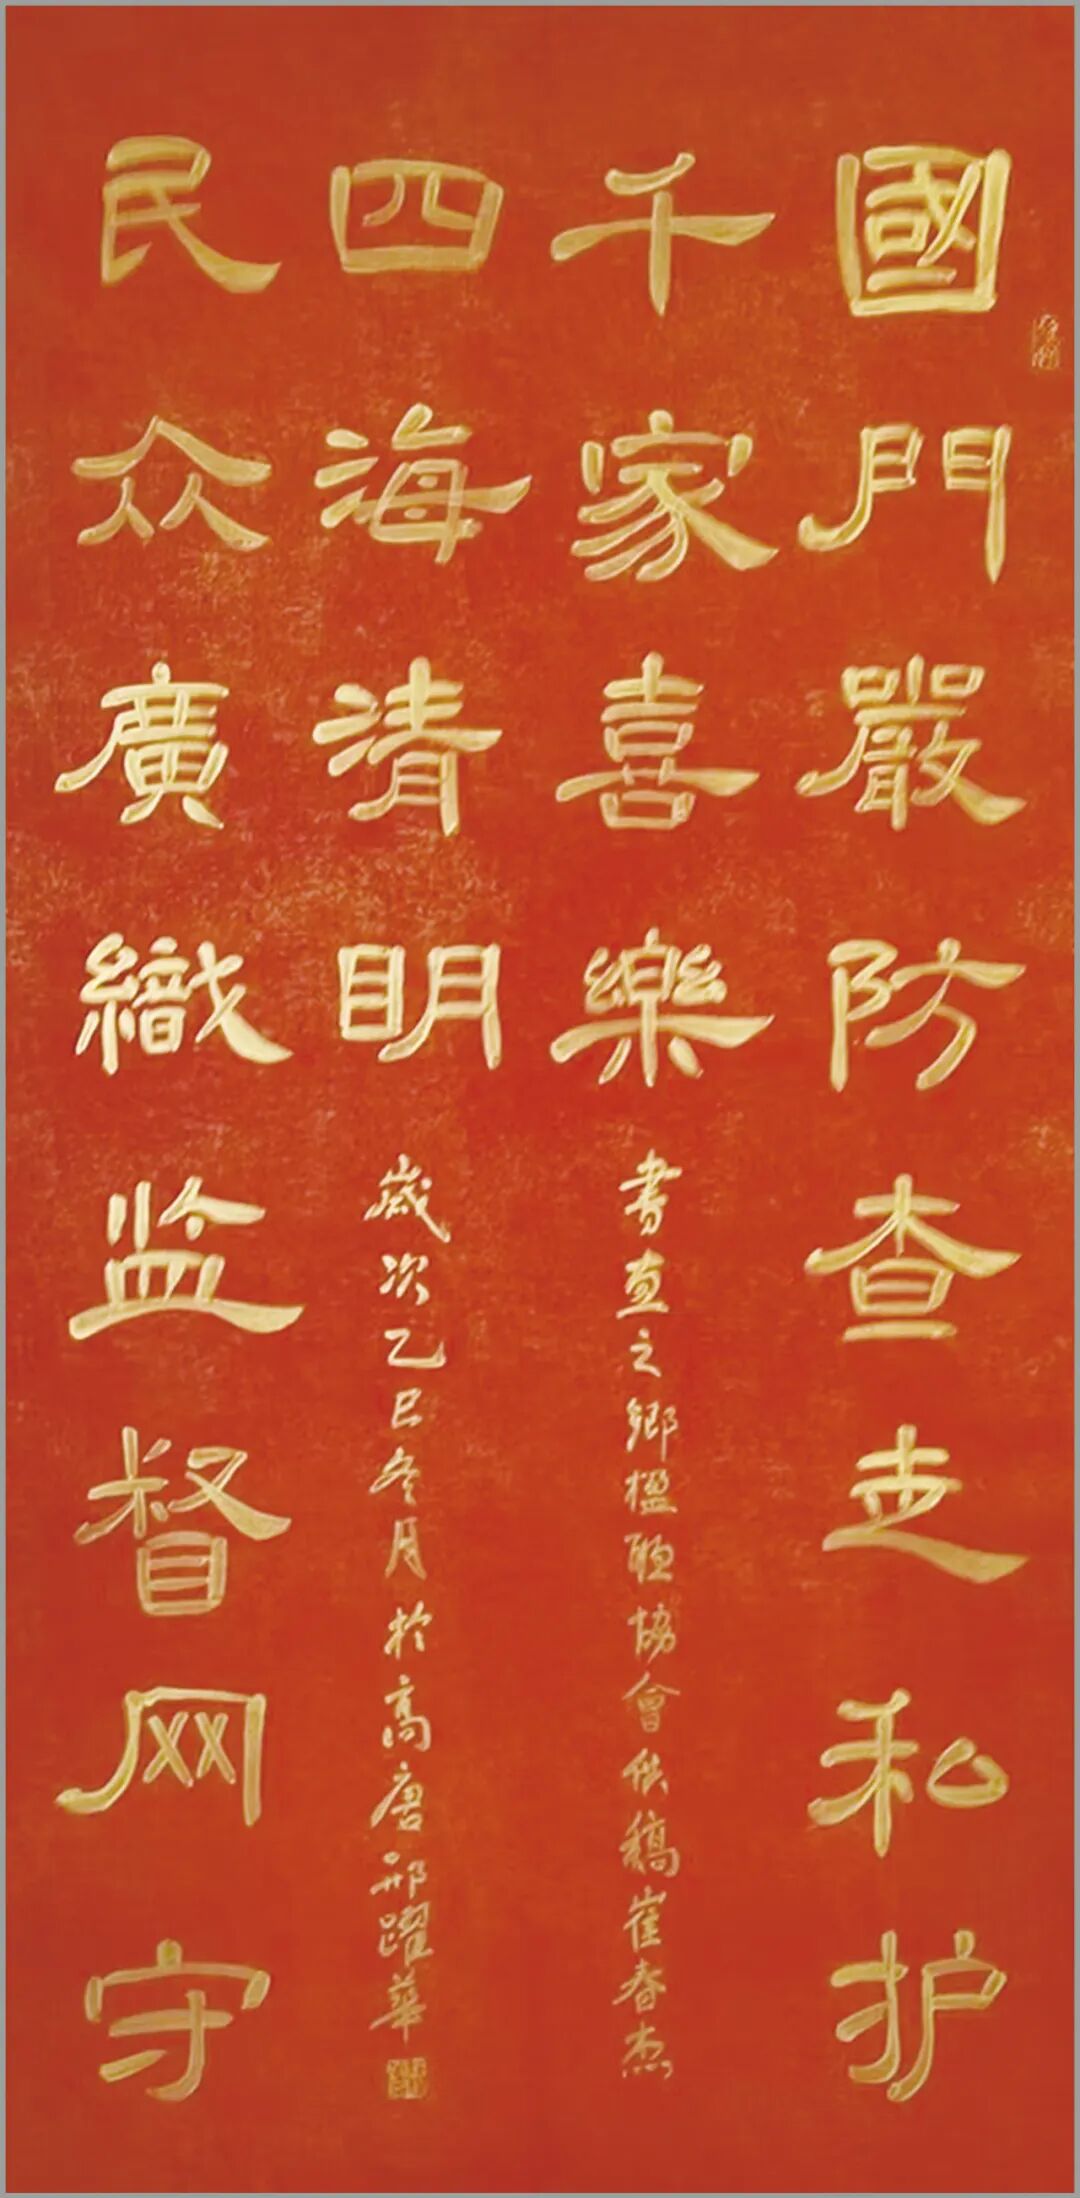 國門嚴防查走私护
千家喜樂
四海清明
民众廣織监督网守
书画之鄉楹联協會供稿崔春杰
歲次乙巳冬月於高唐邢躍華